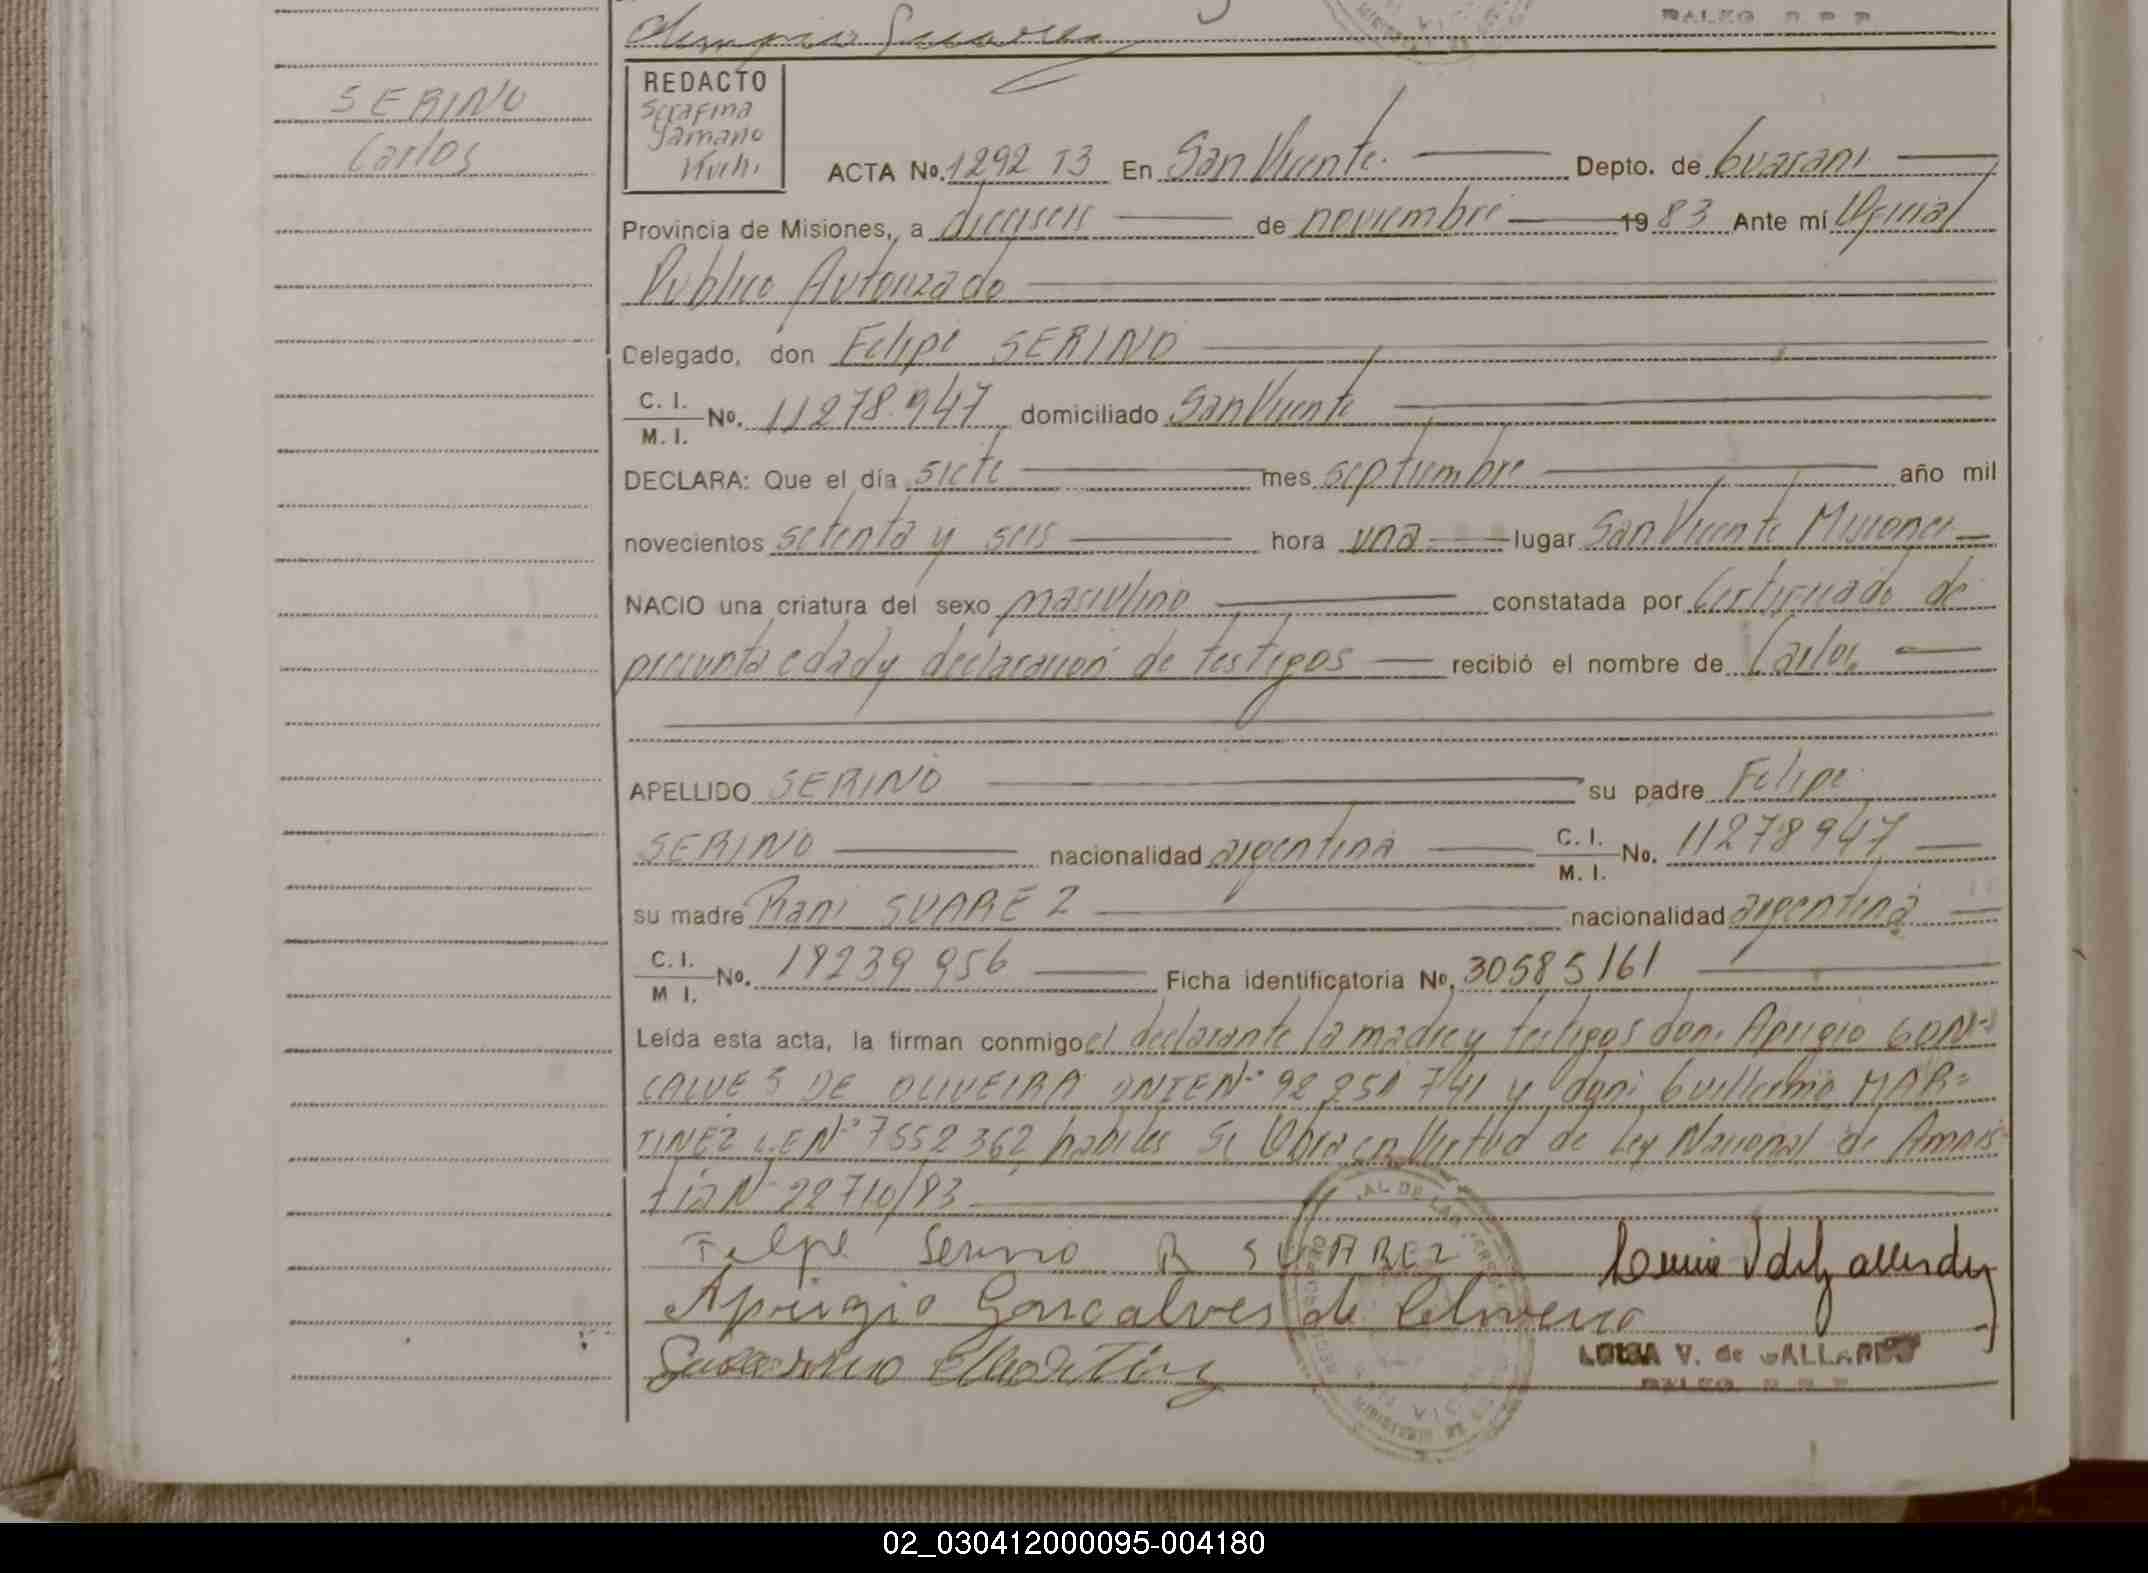 SERINO
Carlos
REDACTO
Serafina
Yamano
ACTA No. 1292 T3 En San Vicente. Depto. de Guarani
Provincia de Misiones, a dieciseis de noviembre 1983 Ante mí Oficial
Publico Autorizado
Delegado, don Felipe SERINO
C. I.
M. I. No. 11278.947 domiciliado San Vicente
DECLARA: Que el día siete mes septiembre año mil
novecientos setenta y seis hora una lugar San Vicente Misiones
NACIO una criatura del sexo masculino constatada por Certificado de
presunta edad y declaración de testigos recibió el nombre de Carlos
APELLIDO SERINO su padre Felipe
SERINO nacionalidad argentina C. I.
M. I. No. 11278947
su madre Rani SUAREZ nacionalidad argentina
C. I.
M I. No. 18239956 Ficha identificatoria No. 30585161
Leída esta acta, la firman conmigo el declarante la madre y testigos don. Aprigio GON-
CALVES DE OLIVEIRA DNIE Nº 92251741 y don: Guillermo MAR=
TINEZ L.E Nº 7552362 habiles Se Labra en Virtud de Ley Nacional de Amnis
tia Nº 22710/83
Felipe Serino R SUAREZ
Aprigio Goncalves de Oliveira
LUISA V. de GALLARDO
02_030412000095-004180